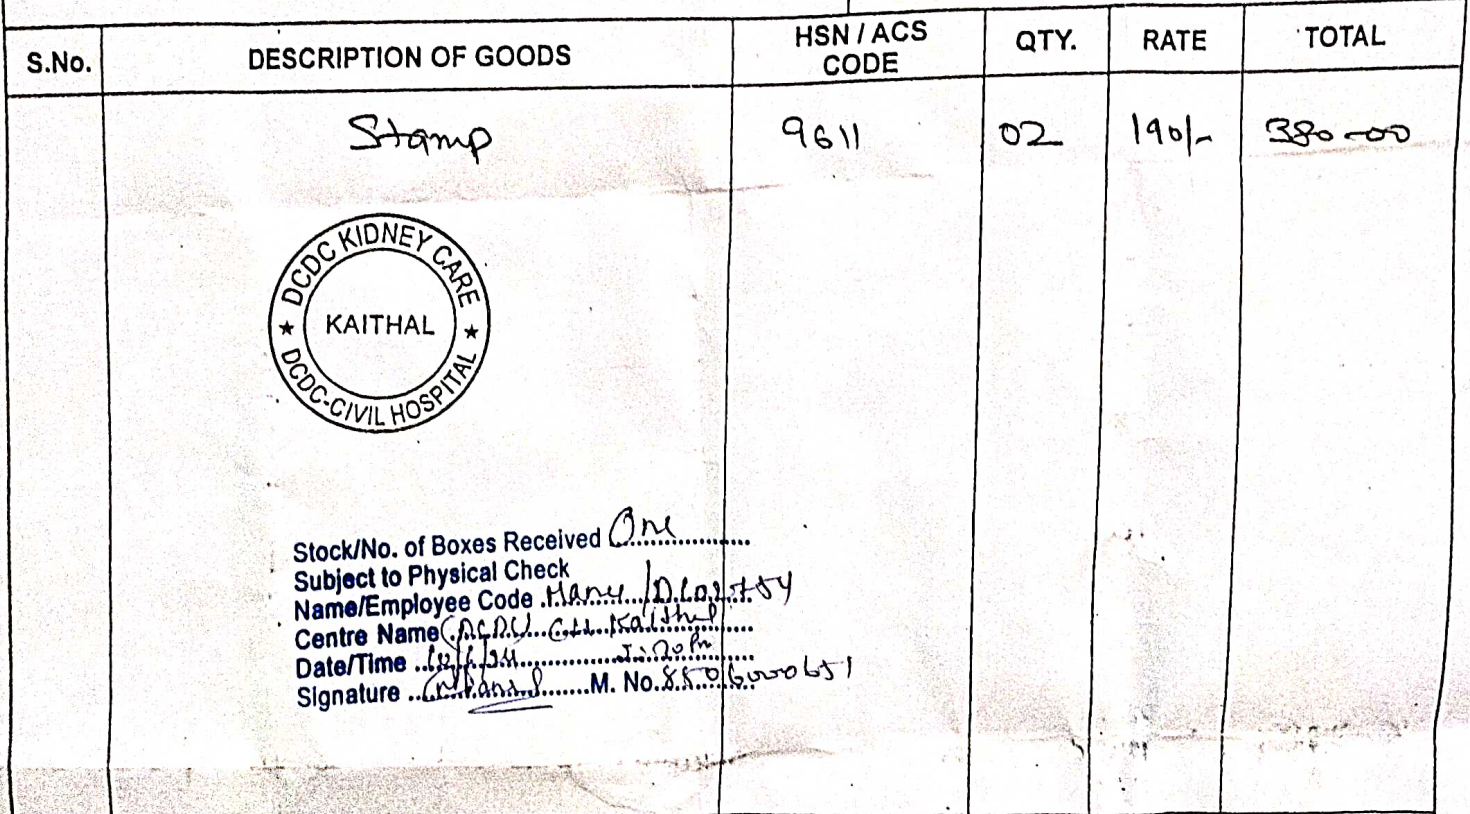 S.No. DESCRIPTION OF GOODS HSN / ACS CODE QTY. RATE TOTAL
Stamp 9611 02 190/- 380-00
DCDC KIDNEY CARE
★ KAITHAL ★
DCDC-CIVIL HOSPITAL
Stock/No. of Boxes Received One
Subject to Physical Check
Name/Employee Code
Centre Name Kaithal
Date/Time
Signature M. No.